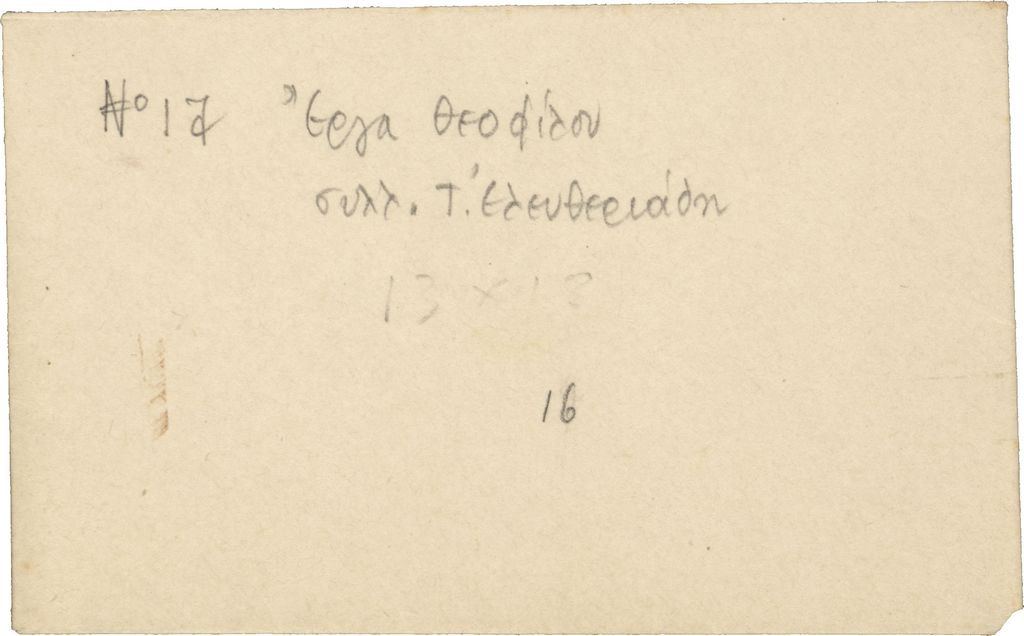 Νο 17 Ἔργα Θεοφίλου
συλλ. Τ. Ἐλευθεριάδη
13 x 13
16